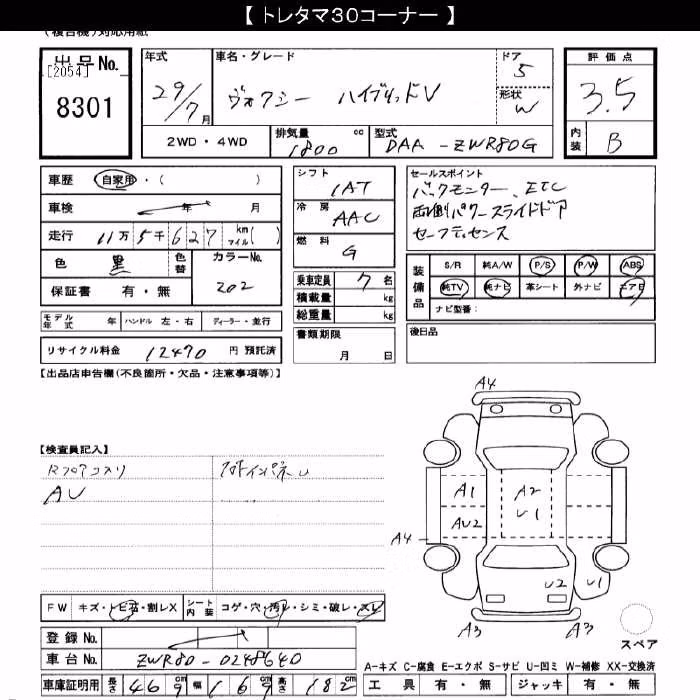 【 トレタマ30コーナー 】
(複合機)対応用紙
出品No.
[2054]
8301
年式 29/7月
車名・グレード ヴォクシー ハイブリッドV
ドア 5
形状 W
2WD・4WD
排気量 1800 cc
型式 DAA-ZWR80G
評価点 3.5
内装 B
車歴 自家用・( )
車検 年 月
走行 11万5千627 km マイル( )
色 黒 色替 カラーNo. 202
保証書 有・無
モデル年式 年 ハンドル 左・右 ディーラー・並行
リサイクル料金 12470 円 預託済
シフト IAT
冷房 AAC
燃料 G
乗車定員 7名
積載量 kg
総重量 kg
書類期限
月 日
セールスポイント
バックモニター、ETC
両側パワースライドドア
セーフティセンス
装備品
S/R 純A/W P/S P/W ABS
純TV 純ナビ 革シート 外ナビ エアB
ナビ型番:
後日品
【出品店申告欄(不良箇所・欠品・注意事項等)】
【検査員記入】
Rフロアコスリ
AU
A4
A1 A2
AU2 U1
A4
U2 U1
A3 A3
スペア
FW キズ・トビ石・割レX
シート内装 コゲ・穴・汚レ・シミ・破レ・スレ
登録No.
車台No. ZWR80-0248640
車庫証明用 長さ 469cm 幅 169cm 高さ 182cm
A-キズ C-腐食 E-エクボ S-サビ U-凹ミ W-補修 XX-交換済
工具 有・無 ジャッキ 有・無